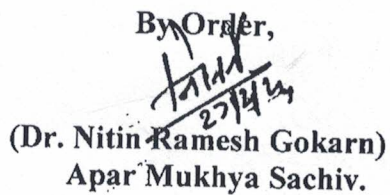 By Order,
(Dr. Nitin Ramesh Gokarn)
Apar Mukhya Sachiv.